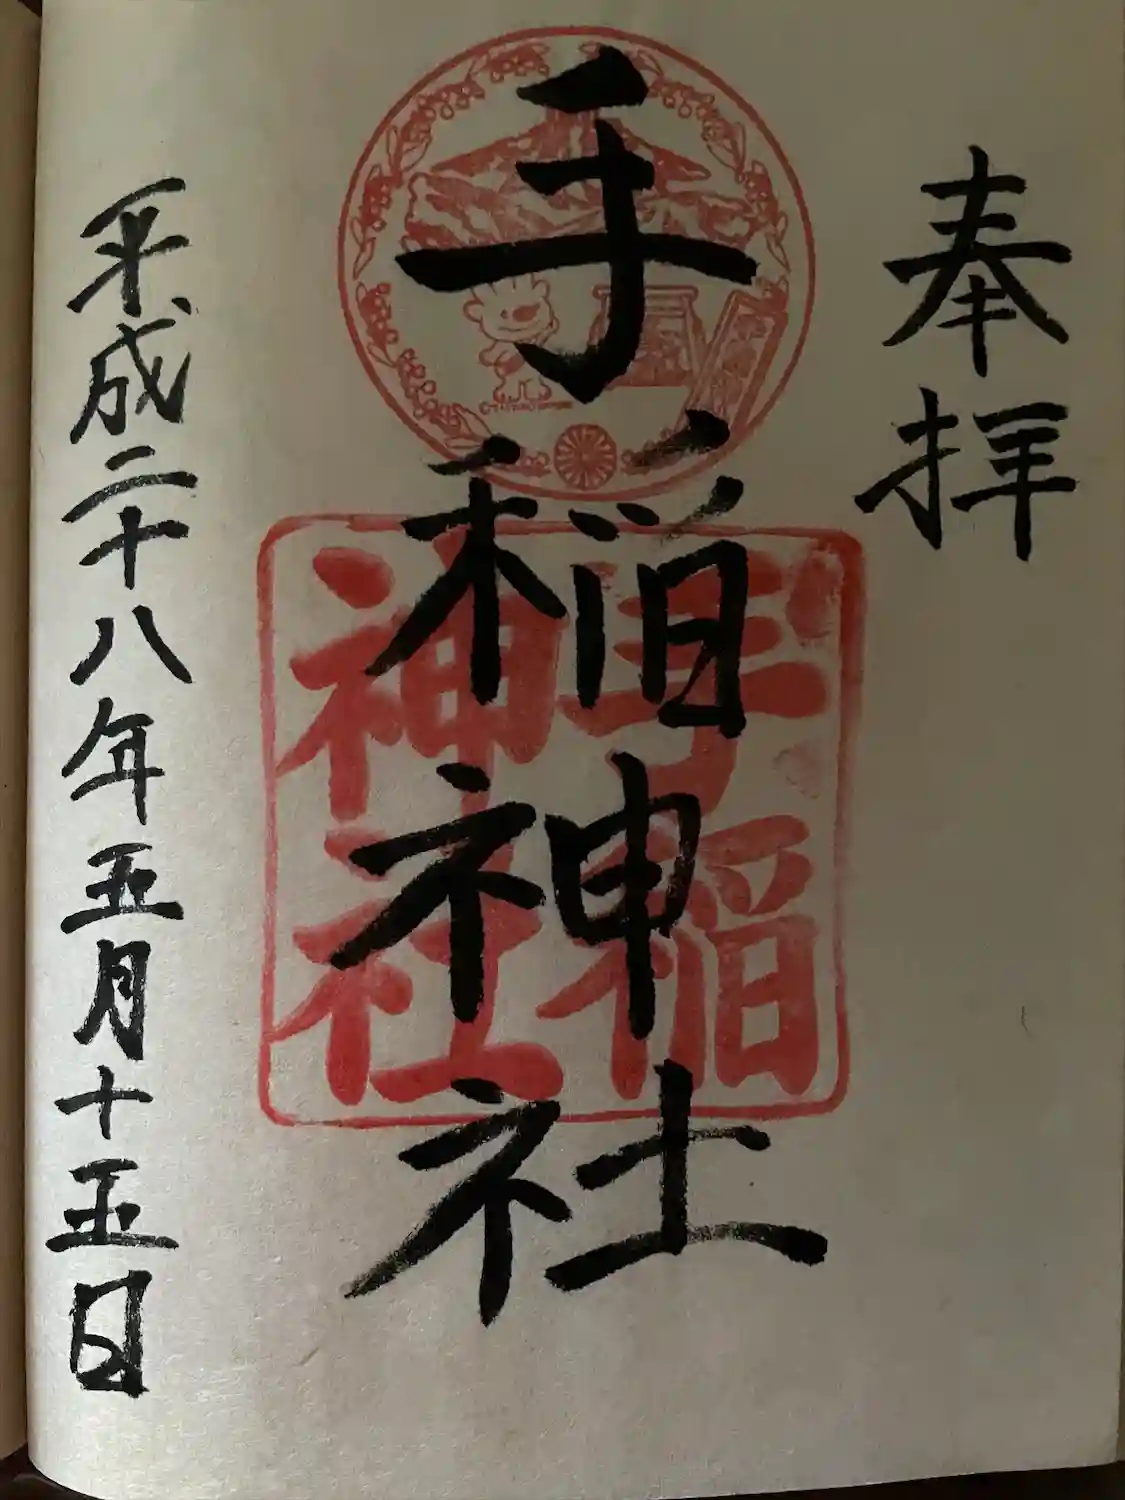 奉拝
手稲神社
手稲
神社
平成二十八年五月十五日